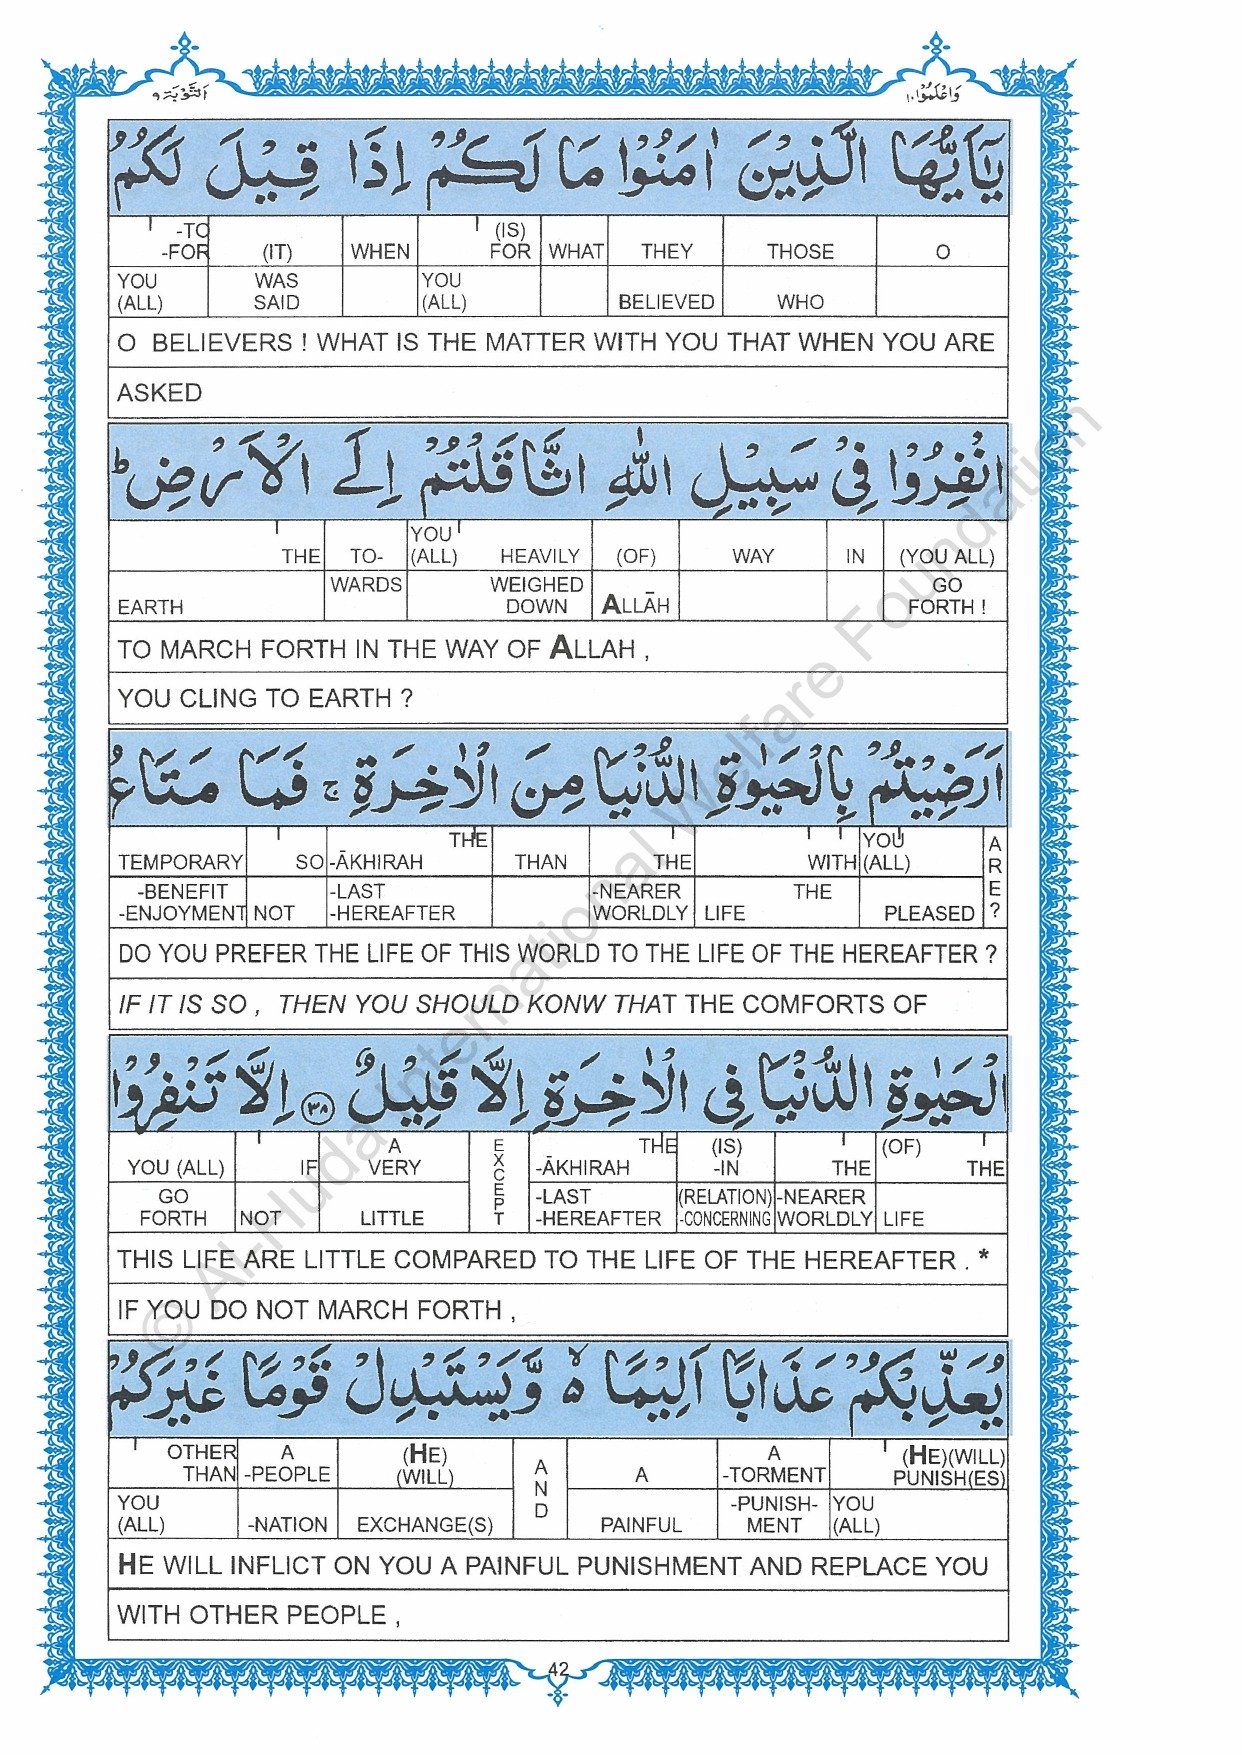 التَّوْبَة ٩
وَاعْلَمُوْا ١٠
يٰۤاَيُّهَا الَّذِيْنَ اٰمَنُوْا مَا لَكُمْ اِذَا قِيْلَ لَكُمُ
-TO (IS)
-FOR (IT) WHEN FOR WHAT THEY THOSE O
YOU WAS YOU
(ALL) SAID (ALL) BELIEVED WHO
O BELIEVERS ! WHAT IS THE MATTER WITH YOU THAT WHEN YOU ARE
ASKED
انْفِرُوْا فِيْ سَبِيْلِ اللّٰهِ اثَّاقَلْتُمْ اِلَى الْاَرْضِ ؕ
YOU
THE TO- (ALL) HEAVILY (OF) WAY IN (YOU ALL)
WARDS WEIGHED GO
EARTH DOWN ALLĀH FORTH !
TO MARCH FORTH IN THE WAY OF ALLAH ,
YOU CLING TO EARTH ?
اَرَضِيْتُمْ بِالْحَيٰوةِ الدُّنْيَا مِنَ الْاٰخِرَةِ ۚ فَمَا مَتَاعُ
THE YOU
TEMPORARY SO -ĀKHIRAH THAN THE WITH (ALL) ARE?
-BENEFIT -LAST -NEARER THE
-ENJOYMENT NOT -HEREAFTER WORLDLY LIFE PLEASED
DO YOU PREFER THE LIFE OF THIS WORLD TO THE LIFE OF THE HEREAFTER ?
IF IT IS SO , THEN YOU SHOULD KONW THAT THE COMFORTS OF
الْحَيٰوةِ الدُّنْيَا فِي الْاٰخِرَةِ اِلَّا قَلِيْلٌ ٣٨ اِلَّا تَنْفِرُوْا
A EXCEPT THE (IS) (OF)
YOU (ALL) IF VERY -ĀKHIRAH -IN THE THE
GO -LAST (RELATION) -NEARER
FORTH NOT LITTLE -HEREAFTER -CONCERNING WORLDLY LIFE
THIS LIFE ARE LITTLE COMPARED TO THE LIFE OF THE HEREAFTER . *
IF YOU DO NOT MARCH FORTH ,
يُعَذِّبْكُمْ عَذَابًا اَلِيْمًا ۙ٥ وَّيَسْتَبْدِلْ قَوْمًا غَيْرَكُمْ
OTHER A (HE) AND A (HE)(WILL)
THAN -PEOPLE (WILL) A -TORMENT PUNISH(ES)
YOU -PUNISH- YOU
(ALL) -NATION EXCHANGE(S) PAINFUL MENT (ALL)
HE WILL INFLICT ON YOU A PAINFUL PUNISHMENT AND REPLACE YOU
WITH OTHER PEOPLE ,
42
© Al-Huda International Welfare Foundation